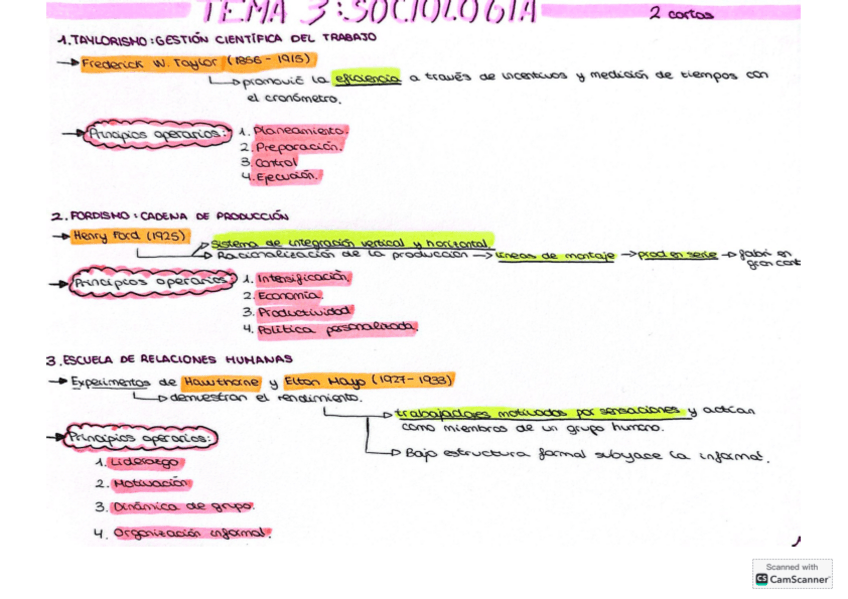 TEMA 3: SOCIOLOGÍA
2 cortas
1. TAYLORISMO: GESTIÓN CIENTÍFICA DEL TRABAJO
→ Frederick W. Taylor (1856 - 1915)
→ promovió la eficiencia a través de incentivos y medición de tiempos con
el cronómetro.
→ Principios operarios: 1. Planeamiento.
2. Preparación.
3. Control
4. Ejecución.
2. FORDISMO: CADENA DE PRODUCCIÓN
→ Henry Ford (1925)
→ Sistema de integración vertical y horizontal
→ Racionalización de la producción → líneas de montaje → prod en serie → fabri en
gran cant
→ Principios operarios: 1. Intensificación
2. Economía
3. Productividad
4. Política personalizada.
3. ESCUELA DE RELACIONES HUMANAS
→ Experimentos de Hawthorne y Elton Mayo (1927 - 1933)
→ demuestran el rendimiento.
→ trabajadores motivados por sensaciones y actúan
como miembros de un grupo humano.
→ Bajo estructura formal subyace la informal.
→ Principios operarios:
1. Liderazgo
2. Motivación
3. Dinámica de grupo.
4. Organización informal.
Scanned with
CS CamScanner